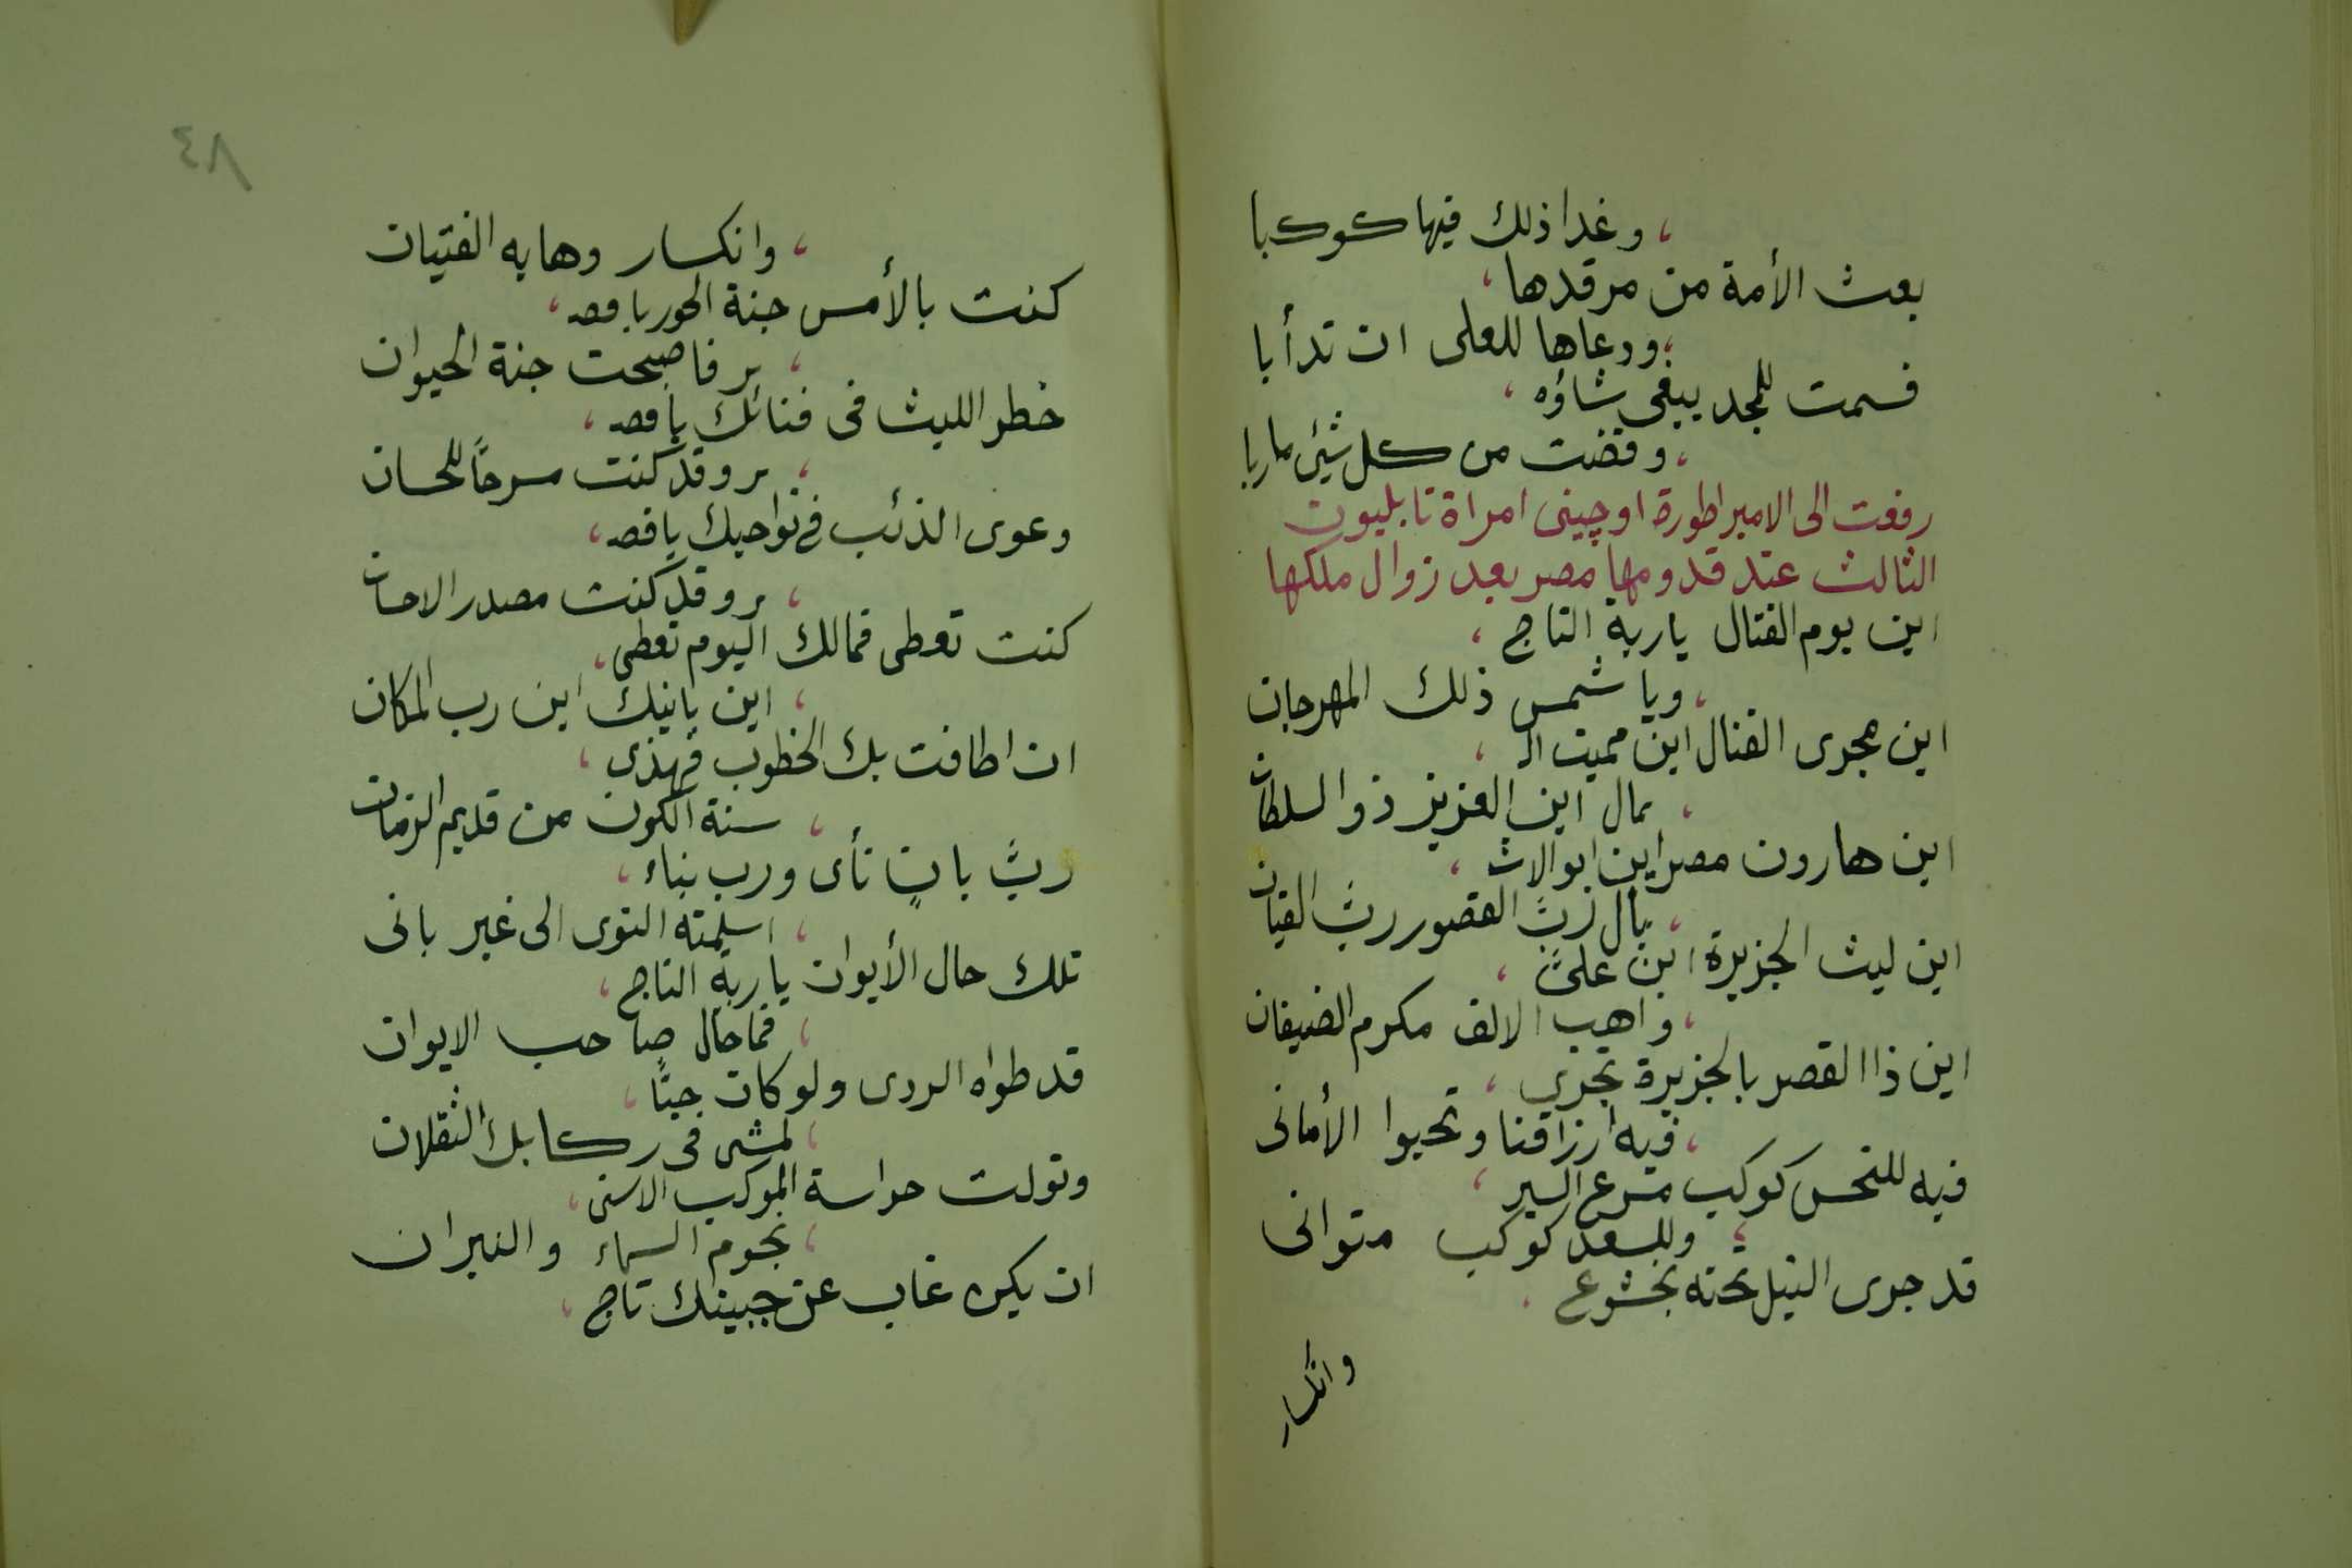 ، وغدا ذلك فيها كوكبا
بعث الأمة من مرقدها ،
، ودعاها للعلى ان تدأبا
فسمت للمجد يبغى شاؤه ،
، وقضت من كل شيئ ماربا
رفعت الى الامبراطورة اوچينى امراة نابليون
الثالث عند قدومها مصر بعد زوال ملكها
اين يوم القتال ياربة التاج ،
، ويا شمس ذلك المهرجان
اين مجرى القنال اين مميت الـ ،
، ـمال اين العزيز ذوالسلطان
اين هارون مصر اين ابوالاش ،
، ـبال ربّ القصور ربّ القيان
اين ليث الجزيرة ابن علىّ ،
، واهب الالف مكرم الضيفان
اين ذا القصر بالجزيرة تجرى ،
، فيه ارزاقنا وتحبوا الأمانى
فيه للنحس كوكب مسرع السير ،
، وللسعد كوكب متوانى
قد جرى النيل تحته بخشوع ،
وانكسار
٨٤
، وانكسار وهابه الفتيان
كنت بالأمس جنة الحور ياقصـ ،
، ـر فاصبحت جنة الحيوان
خطر الليث فى فنائك ياقصـ ،
، ـر وقد كنت مسرحًا للحسان
وعوى الذئب فى نواحيك ياقصـ ،
، ـر وقد كنت مصدر الاحسان
كنت تعطى فمالك اليوم تعطى ،
، اين بانيك اين رب المكان
ان اطافت بك الخطوب فهذى ،
، سنة الكون من قديم الزمان
ربّ بانٍ نأى ورب بناء ،
، اسلمته النوى الى غير بانى
تلك حال الأيوان ياربة التاج ،
، فما حال صاحب الايوان
قد طواه الردى ولو كان حيًّا ،
، لمشى فى ركابك الثقلان
وتولت حراسة الموكب الاسنى ،
، نجوم السماء والنيران
ان يكن غاب عن جبينك تاج ،